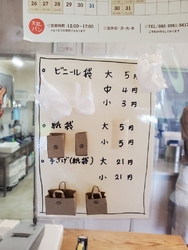 26 27 28 29 30 31
天然パン
営業時間 / 12:00~17:00
ビニール袋 大 5円
中 4円
小 3円
紙袋 大 5円
小 5円
手さげ(紙袋) 大 21円
小 21円